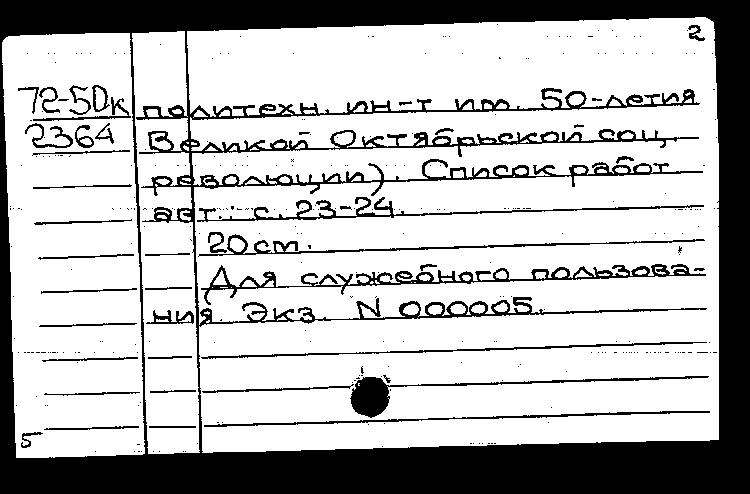 2
72-5Dк политехн. ин-т им. 50-летия
2364 Великой Октябрьской соц.
революции). Список работ
авт.: с. 23-24.
20 cm.
Для служебного пользова-
ния. Экз. N 000005.
5